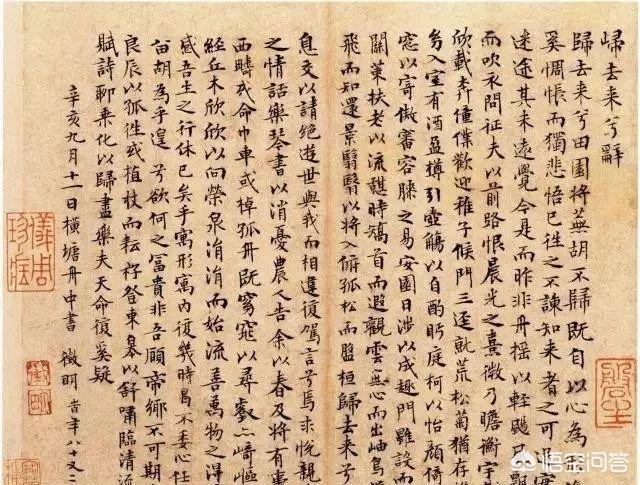 歸去来兮辭
歸去来兮田園將蕪胡不歸既自以心為
奚惆悵而獨悲悟已往之不諫知来者之可
迷途其未遠覺今是而昨非舟摇以輕颺
而吹衣問征夫以前路恨晨光之熹微乃瞻衡宇
欣載奔僮僕歡迎稚子候門三迳就荒松菊猶存
幼入室有酒盈樽引壺觴以自酌眄庭柯以怡顔倚
窓以寄傲審容膝之易安園日涉以成趣門雖設而
關策扶老以流憩時矯首而遐觀雲無心而出岫鳥
飛而知還景翳翳以將入撫孤松而盤桓歸去来兮
息交以請絶遊世與我而相違復駕言兮焉求悦親
之情話樂琴書以消憂農人告余以春及將有事
西疇或命巾車或棹孤舟既窈窕以尋壑亦崎嶇
經丘木欣欣以向榮泉涓涓而始流善萬物之得
感吾生之行休已矣乎寓形寓内復幾時曷不委心任
留胡為乎遑兮欲何之富貴非吾願帝鄉不可期
良辰以孤往或植杖而耘耔登東皋以舒嘯臨清流
賦詩聊乗化以歸盡樂夫天命復奚疑
辛亥九月十一日橫塘舟中書 徵明 時年八十又二
悟空问答